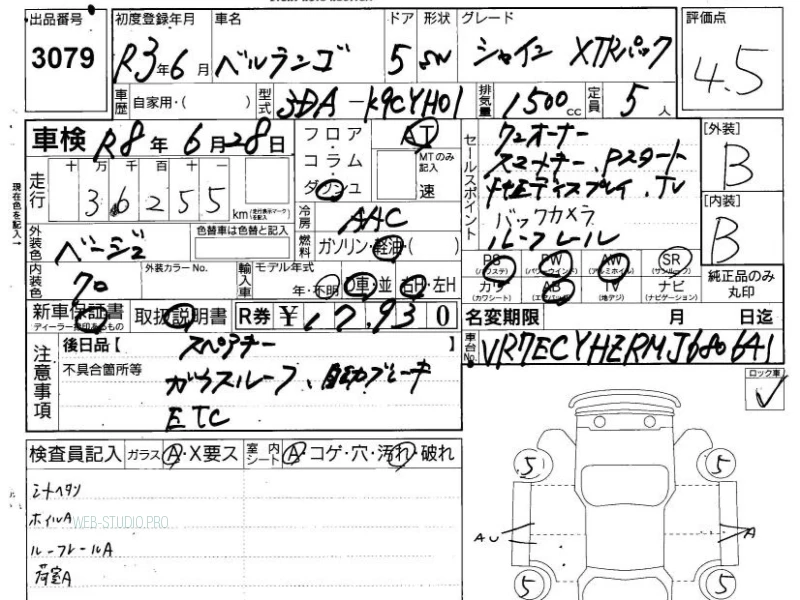 出品番号 初度登録年月 車名 ドア 形状 グレード 評価点
3079 R3年6月 ベルランゴ 5 SW シャイン XTRパック 4.5
車歴 自家用・( ) 型式 3DA-K9CYH01 排気量 1500cc 定員 5人
車検 R8年6月28日 フロア・コラム・ダッシュ AT
MTのみ記入 速
走行 十万千百十一
36255 km(走行表示マークを記入)
現在色を記入→
外装色 ベージュ 色替車は色替と記入
冷房 AAC
燃料 ガソリン・軽油・( )
内装色 クロ 外装カラーNo. 輸入車 モデル年式 年・不明 D車・並 右H・左H
セールスポイント
ワンオーナー
スマートキー、Pスタート
バックカメラ
ルーフレール
[外装]
B
[内装]
B
PS (パワステ) PW (パワーウインド) AW (アルミホイル) SR (サンルーフ)
カワ (カワシート) AB (エアバッグ) TV (地デジ) ナビ (ナビゲーション)
純正品のみ丸印
新車保証書 ディーラー捺印あるもの 取扱説明書 R券 ¥17,930
名変期限 月 日迄
注意事項 後日品【 スペアキー 】
車台No. VR7ECYHZRMJ680641
不具合箇所等 ガラスルーフ、自動ブレーキ
ETC
ロック車
検査員記入 ガラス A・X要ス 室内シート A・コゲ・穴・汚れ・破れ
ホイルA
WEB-STUDIO.PRO
ルーフレールA
荷室A
5 5
AU A
5 5